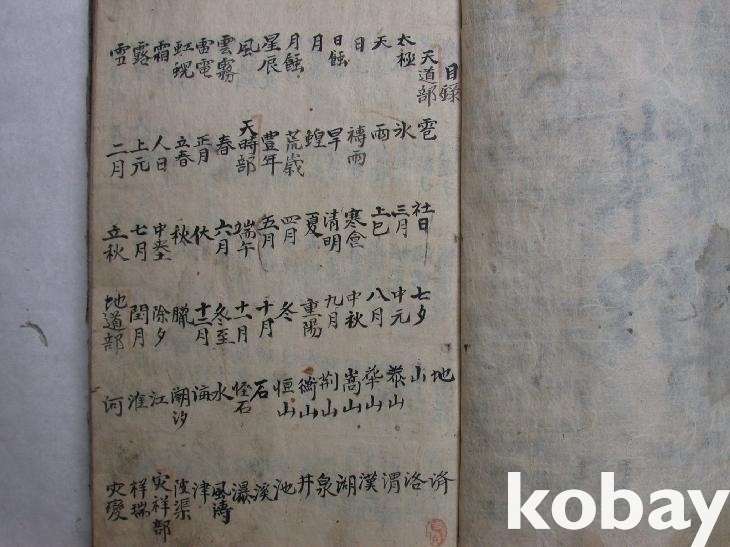 目錄
天道部 太極 天 日 日蝕 月 月蝕 星辰 風 雲霧 雷電 虹蜺 霜 露 雪
雹 氷 雨 禱雨 旱 蝗 荒歲 豊年 天時部 春 正月 立春 人日 上元 二月
社日 三月 上巳 寒食 清明 夏 四月 五月 端午 六月 伏 秋 七月 立秋
七夕 中元 八月 中秋 九月 重陽 冬 十月 十一月 冬至 十二月 臘 除夕 閏月 地道部
地 山 泰山 華山 嵩山 荊山 衡山 恒山 石 怪石 水 海 潮汐 江 淮 河
济 洛 渭 漢 湖 泉 井 池 溪 瀑 風濤 津 灾祥部 祥瑞 灾變
kobay